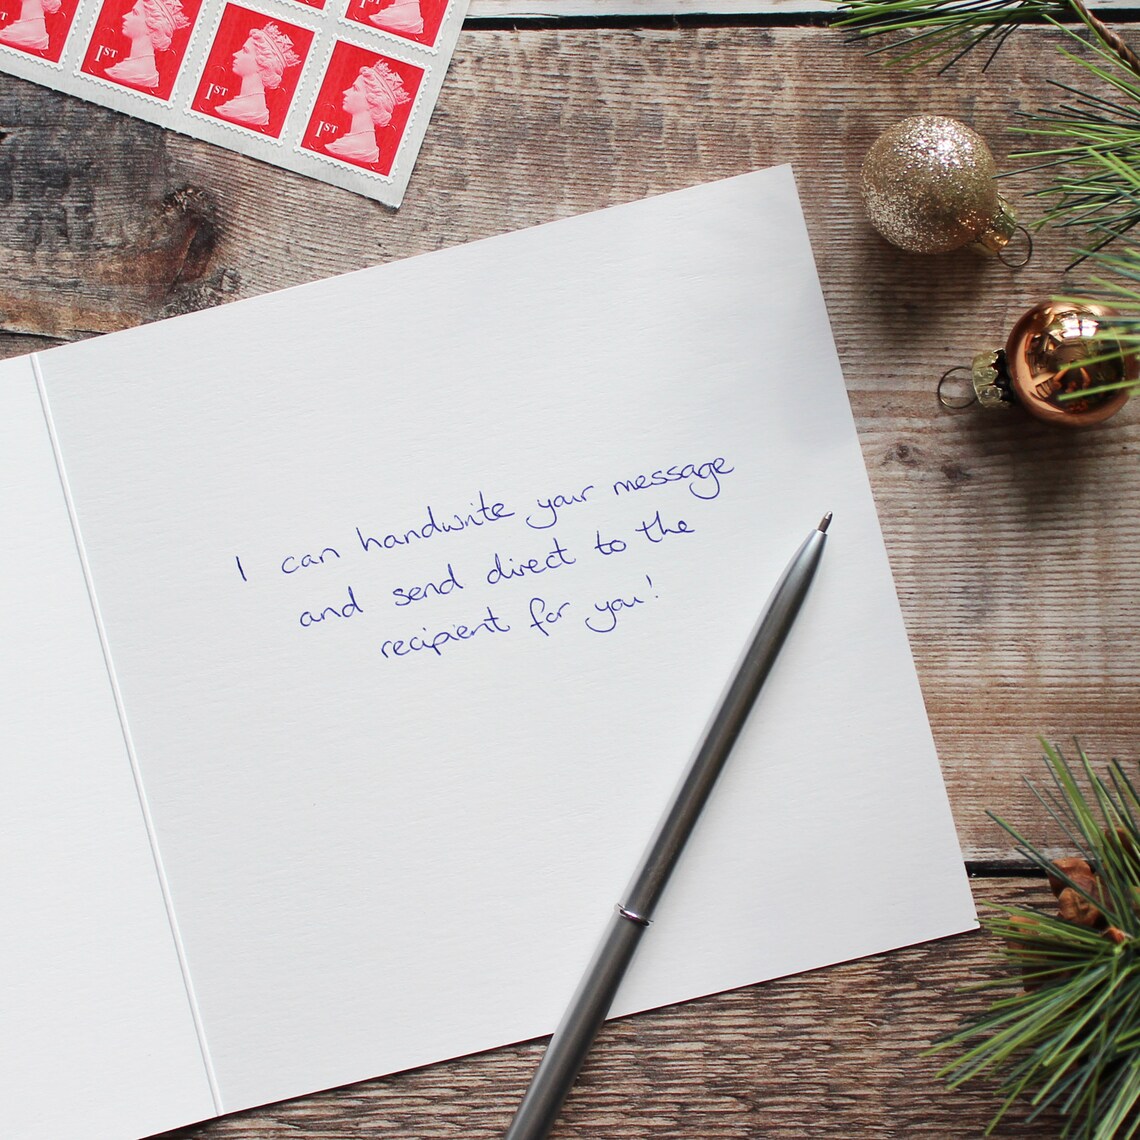 1ST
1ST
1ST
I can handwrite your message
and send direct to the
recipient for you!